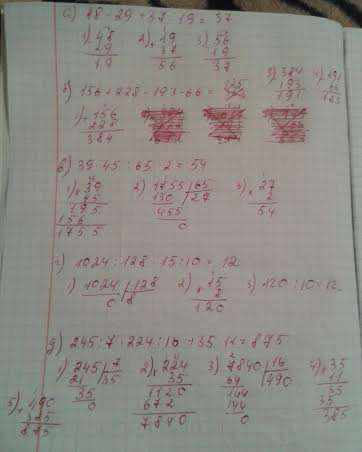 а) 48 - 29 + 37 - 19 = 37
1) 48 2) 19 3) 56
29 37 19
19 56 37
б) 156 + 228 - 193 - 66 = 125
1) 156 3) 384 4) 191
228 193 66
384 191 125
в) 39 · 45 : 65 · 2 = 54
1) 39 2) 1755 | 65 3) 27
45 130 | 27 2
195 455 54
156 0
1755
г) 1024 : 128 · 15 : 10 = 12
1) 1024 | 128 2) 15 3) 120 : 10 = 12
0 | 8 8
120
д) 245 : 7 · 224 : 16 + 35 · 11 = 875
1) 245 | 7 2) 224 3) 7840 | 16 4) 35
21 | 35 35 64 | 490 11
35 1120 144 35
0 672 144 35
7840 0 385
5) 490
385
875